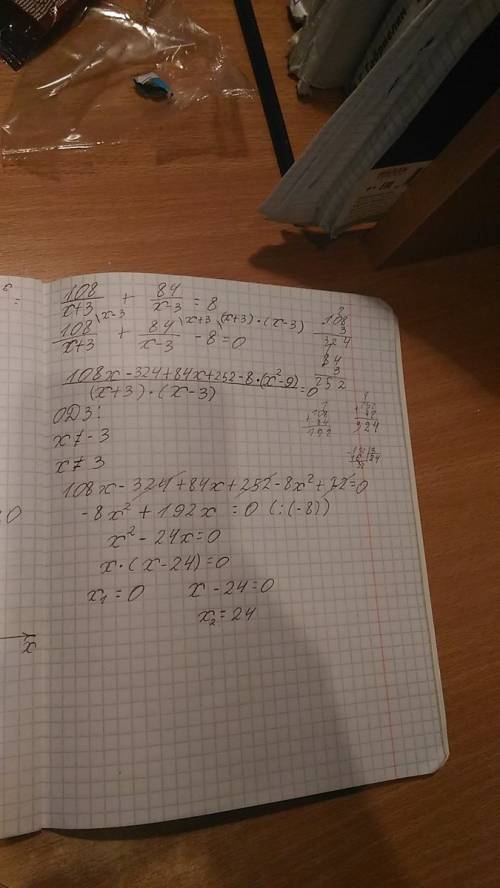 108/(x+3) + 84/(x-3) = 8
108/(x+3) \x-3 + 84/(x-3) \x+3 - 8 \(x+3)·(x-3) = 0
(108x - 324 + 84x + 252 - 8·(x² - 9))/((x+3)·(x-3)) = 0
ОДЗ:
x ≠ -3
x ≠ 3
108x - 324 + 84x + 252 - 8x² + 72 = 0
-8x² + 192x = 0 (:(-8))
x² - 24x = 0
x·(x - 24) = 0
x₁ = 0 x - 24 = 0
x₂ = 24
2
108
3
324
84
3
252
1
108
+ 84
192
1
252
+ 72
324
x